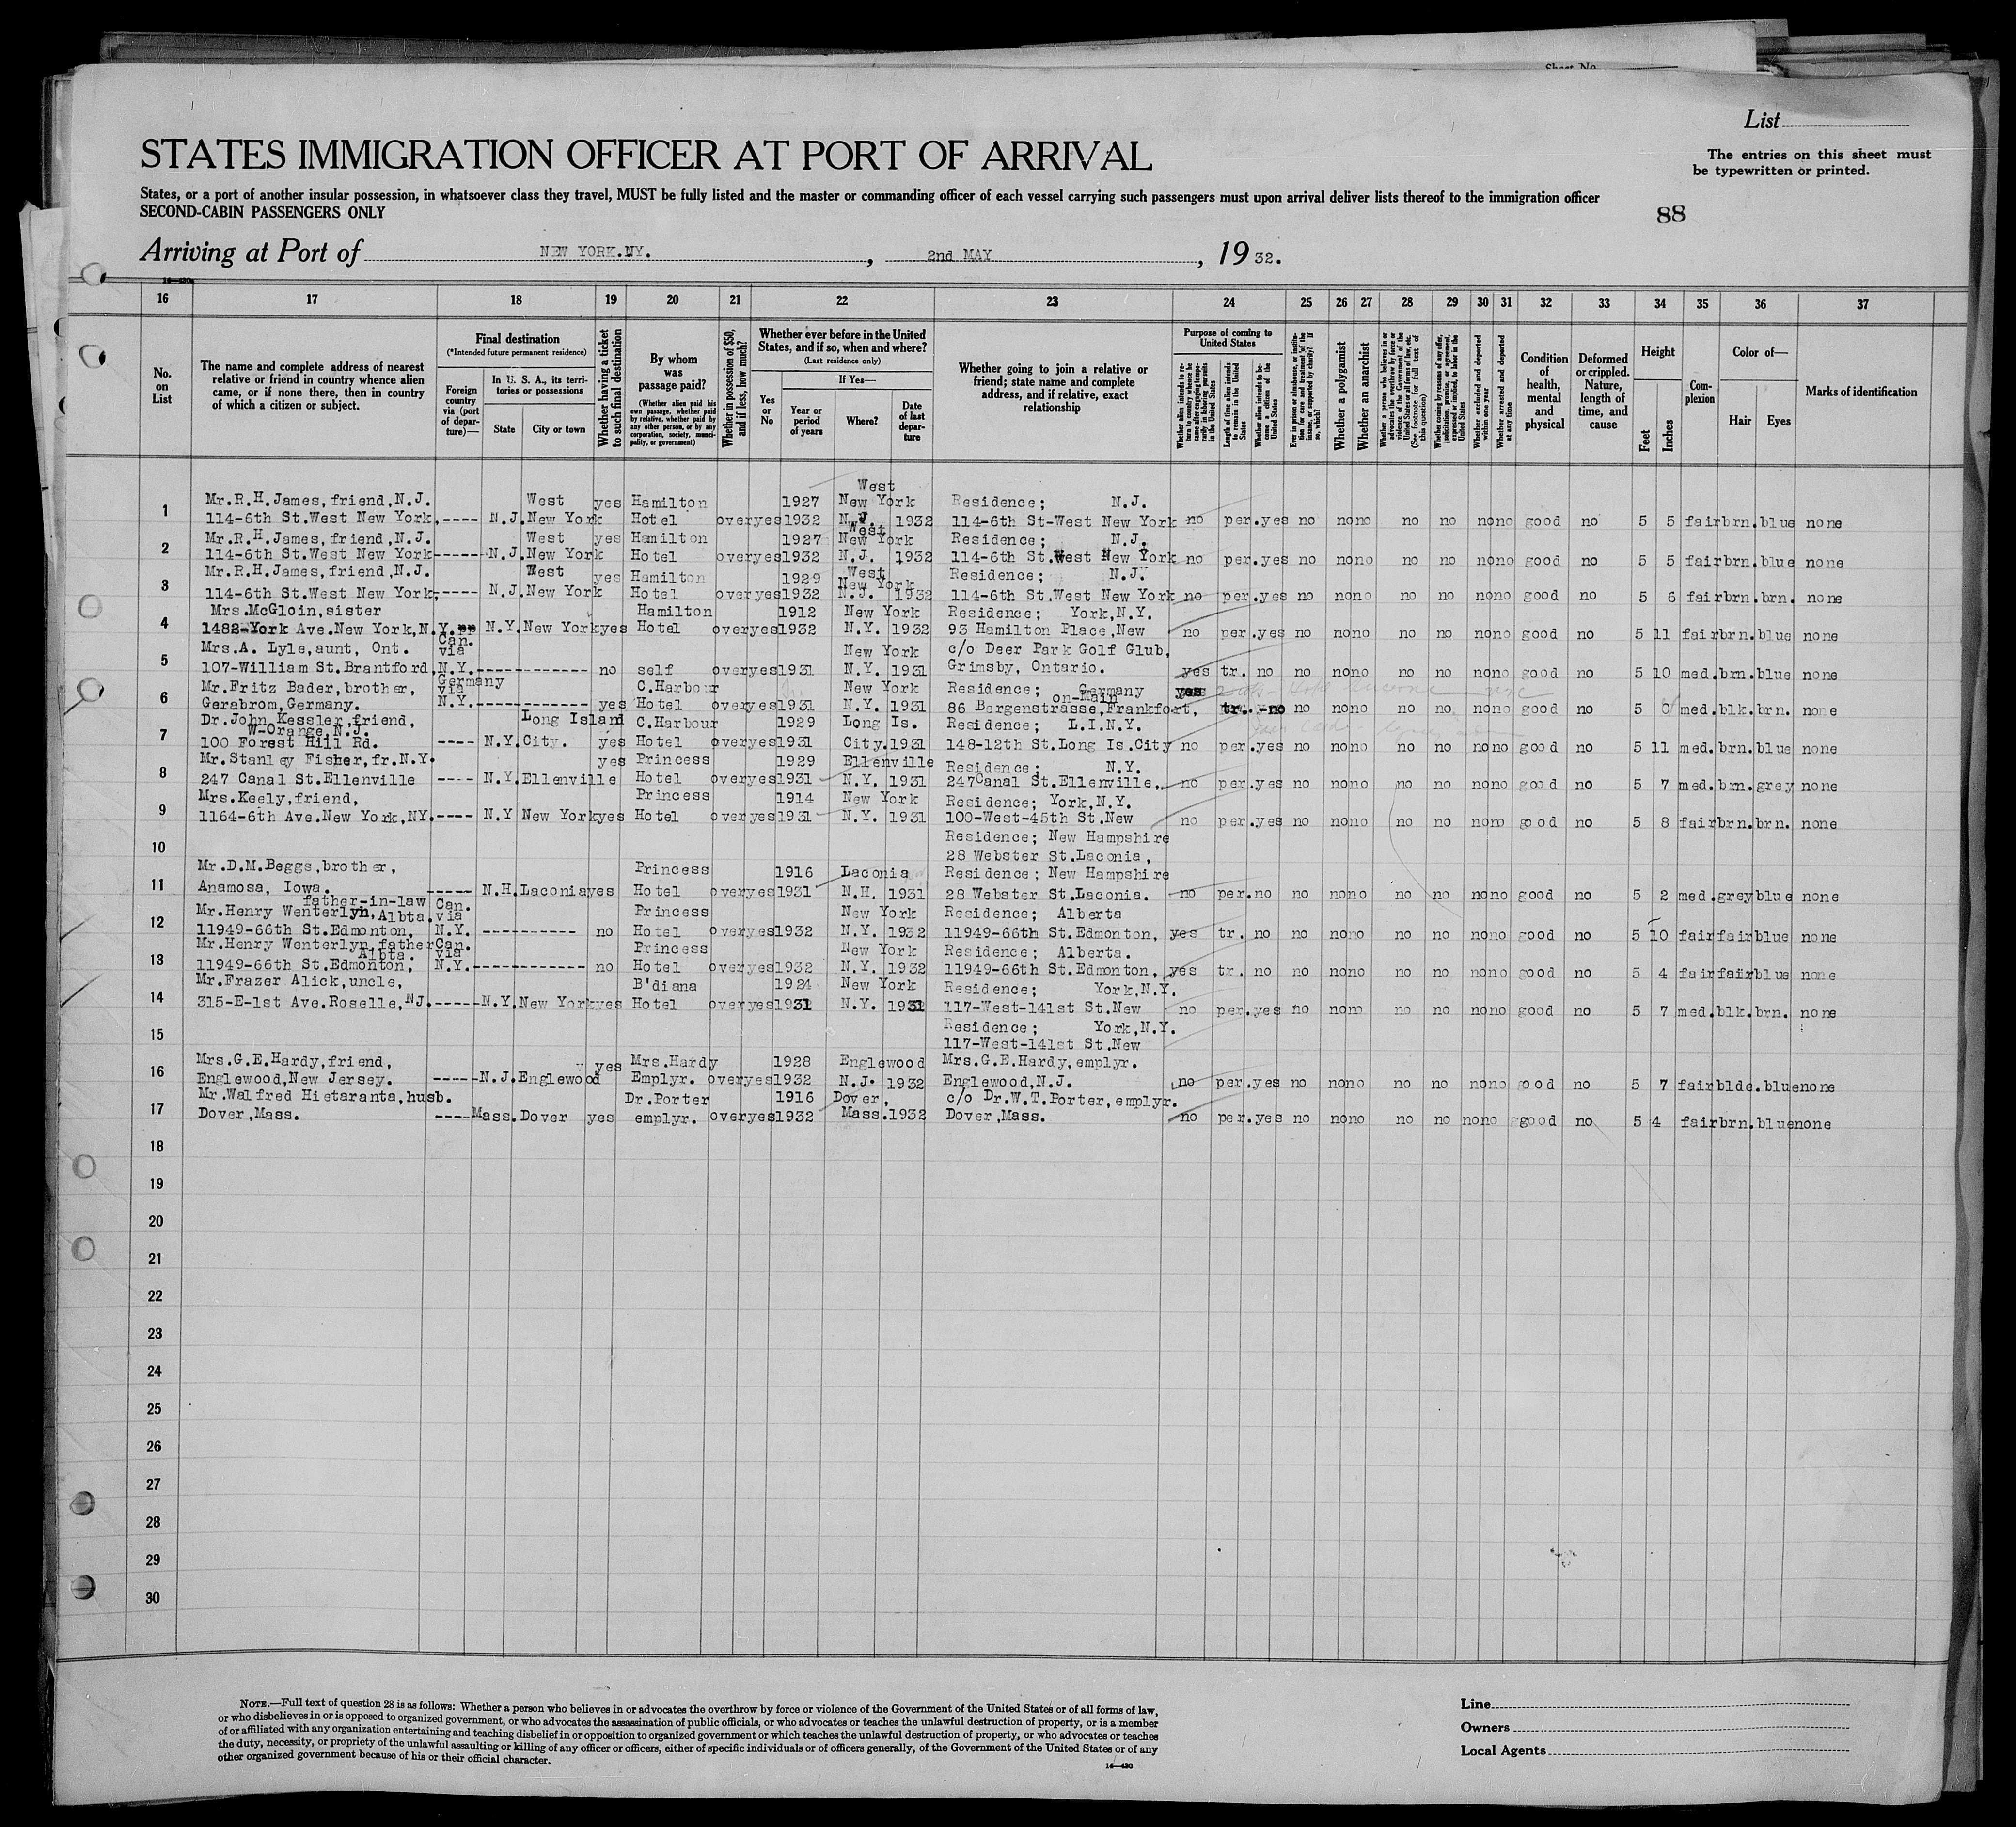 Sheet No.
List
STATES IMMIGRATION OFFICER AT PORT OF ARRIVAL
The entries on this sheet must
be typewritten or printed.
States, or a port of another insular possession, in whatsoever class they travel, MUST be fully listed and the master or commanding officer of each vessel carrying such passengers must upon arrival deliver lists thereof to the immigration officer
SECOND-CABIN PASSENGERS ONLY
88
Arriving at Port of NEW YORK.NY. , 2nd MAY , 1932.
16 17 18 19 20 21 22 23 24 25 26 27 28 29 30 31 32 33 34 35 36 37
No. on List
The name and complete address of nearest relative or friend in country whence alien came, or if none there, then in country of which a citizen or subject.
Final destination
(*Intended future permanent residence)
Foreign country via (port of departure)—
In U. S. A., its territories or possessions
State
City or town
Whether having a ticket to such final destination
By whom was passage paid?
(Whether alien paid his own passage, whether paid by relative, whether paid by any other person, or by any corporation, society, municipality, or government)
Whether in possession of $50, and if less, how much?
Whether ever before in the United States, and if so, when and where?
(Last residence only)
Yes or No
If Yes—
Year or period of years
Where?
Date of last departure
Whether going to join a relative or friend; state name and complete address, and if relative, exact relationship
Purpose of coming to United States
Whether alien intends to return to country whence he came after engaging temporarily in laboring pursuits in the United States
Length of time alien intends to remain in the United States
Whether alien intends to become a citizen of the United States
Ever in prison or almshouse, or institution for care and treatment of the insane, or supported by charity? If so, which?
Whether a polygamist
Whether an anarchist
Whether a person who believes in or advocates the overthrow by force or violence of the Government of the United States or all forms of law, etc. (See footnote for full text of this question)
Whether coming by reasons of any offer, solicitation, promise, or agreement, expressed or implied, to labor in the United States
Whether excluded and deported within one year
Whether arrested and deported at any time
Condition of health, mental and physical
Deformed or crippled. Nature, length of time, and cause
Height
Feet
Inches
Complexion
Color of—
Hair
Eyes
Marks of identification
West
Mr.R.H.James,friend,N.J. West yes Hamilton 1927 New York Residence; N.J.
1 114-6th St.West New York,---- N.J. New York Hotel over yes 1932 N.J. 1932 114-6th St-West New York no per. yes no no no no no no no good no 5 5 fair brn. blue none
West
Mr.R.H.James,friend,N.J. West yes Hamilton 1927 New York Residence; N.J.
2 114-6th St.West New York------N.J. New York Hotel over yes 1932 N.J. 1932 114-6th St.West New York no per. yes no no no no no no no good no 5 5 fair brn. blue none
Mr.R.H.James,friend,N.J. West yes Hamilton 1929 West New York Residence; N.J.
3 114-6th St.West New York,---- N.J. New York Hotel over yes 1932 N.J. 1932 114-6th St.West New York no per. yes no no no no no no no good no 5 6 fair brn. brn. none
Mrs.McGloin,sister Hamilton 1912 New York Residence; York,N.Y.
4 1482-York Ave.New York,N.Y. N.Y. New York yes Hotel over yes 1932 N.Y. 1932 93 Hamilton Place,New no per. yes no no no no no no no good no 5 11 fair brn. blue none
Mrs.A. Lyle,aunt, Ont. Can. via New York c/o Deer Park Golf Glub,
5 107-William St.Brantford, N.Y.------------- no self over yes 1931 N.Y. 1931 Grimsby, Ontario. yes tr. no no no no no no no no good no 5 10 med. brn. blue none
Mr.Fritz Bader,brother, Germany via C.Harbour New York Residence; Germany
on-Main yes
6 Gerabrom,Germany. N.Y.------------- yes Hotel over yes 1931 N.Y. 1931 86 Bergenstrasse,Frankfort, tr. -no no no no no no no no good no 5 0 med. blk. brn. none
Dr.John Kessler,friend, Long Island C.Harbour 1929 Long Is. Residence; L.I.N.Y.
W-Orange,N.J.
7 100 Forest Hill Rd. ---- N.Y. City. yes Hotel over yes 1931 City. 1931 148-12th St.Long Is.City no per. yes no no no no no no no good no 5 11 med. brn. blue none
Mr.Stanley Fisher,fr.N.Y. yes Princess 1929 Ellenville Residence; N.Y.
8 247 Canal St.Ellenville ---- N.Y. Ellenville Hotel over yes 1931 N.Y. 1931 247Canal St.Ellenville, no per. yes no no no no no no no good no 5 7 med. brn. grey none
Mrs.Keely,friend, Princess 1914 New York Residence; York,N.Y.
9 1164-6th Ave.New York,NY.---- N.Y New York yes Hotel over yes 1931 N.Y. 1931 100-West-45th St.New no per. yes no no no no no no no good no 5 8 fair brn. brn. none
Residence; New Hampshire
10 28 Webster St.Laconia,
Mr.D.M.Beggs,brother, Princess 1916 Laconia Residence; New Hampshire
11 Anamosa, Iowa. ----- N.H. Laconia yes Hotel over yes 1931 N.H. 1931 28 Webster St.Laconia. no per. no no no no no no no no good no 5 2 med. grey blue none
father-in-law Can.
12 Mr.Henry Wenterlyn,Albta. via Princess New York Residence; Alberta
11949-66th St.Edmonton, N.Y. ---------- no Hotel over yes 1932 N.Y. 1932 11949-66th St.Edmonton, yes tr. no no no no no no no no good no 5 10 fair fair blue none
Mr.Henry Wenterlyn,father Can. Princess New York Residence; Alberta.
Albta. via
13 11949-66th St.Edmonton, N.Y.------------ no Hotel over yes 1932 N.Y. 1932 11949-66th St.Edmonton, yes tr. no no no no no no no no good no 5 4 fair fair blue none
Mr.Frazer Alick,uncle, B'diana 1924 New York Residence; York,N.Y.
14 315-E-1st Ave.Roselle,NJ.-----N.Y. New York yes Hotel over yes 1931 N.Y. 1931 117-West-141st St.New no per. yes no no no no no no no good no 5 7 med. blk. brn. none
Residence; York,N.Y.
15 117-West-141st St.New
Mrs.G.E.Hardy,friend, yes Mrs.Hardy 1928 Englewood Mrs.G.E.Hardy,emplyr.
16 Englewood,New Jersey. -----N.J. Englewood Emplyr. over yes 1932 N.J. 1932 Englewood,N.J. no per. yes no no no no no no no good no 5 7 fair blde. blue none
Mr.Walfred Hietaranta,husb. Dr.Porter 1916 Dover, c/o Dr.W.T.Porter,emplyr.
17 Dover,Mass. ----Mass. Dover yes emplyr. over yes 1932 Mass. 1932 Dover,Mass. no per. yes no no no no no no no good no 5 4 fair brn. blue none
18
19
20
21
22
23
24
25
26
27
28
29
30
NOTE.—Full text of question 28 is as follows: Whether a person who believes in or advocates the overthrow by force or violence of the Government of the United States or of all forms of law,
or who disbelieves in or is opposed to organized government, or who advocates the assassination of public officials, or who advocates or teaches the unlawful destruction of property, or is a member
of or affiliated with any organization entertaining and teaching disbelief in or opposition to organized government or which teaches the unlawful destruction of property, or who advocates or teaches
the duty, necessity, or propriety of the unlawful assaulting or killing of any officer or officers, either of specific individuals or of officers generally, of the Government of the United States or of any
other organized government because of his or their official character.
14—430
Line
Owners
Local Agents